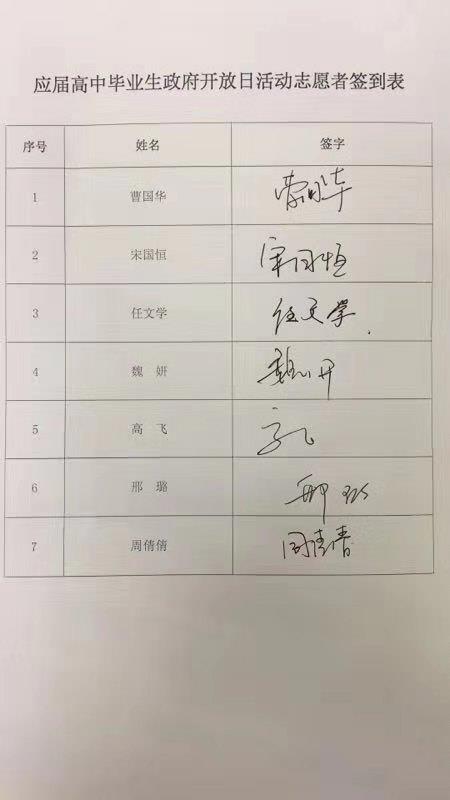 应届高中毕业生政府开放日活动志愿者签到表
序号 姓名 签字
1 曹国华 曹国华
2 宋国恒 宋国恒
3 任文学 任文学
4 魏 妍 魏妍
5 高 飞 高飞
6 邢 璐 邢璐
7 周倩倩 周倩倩